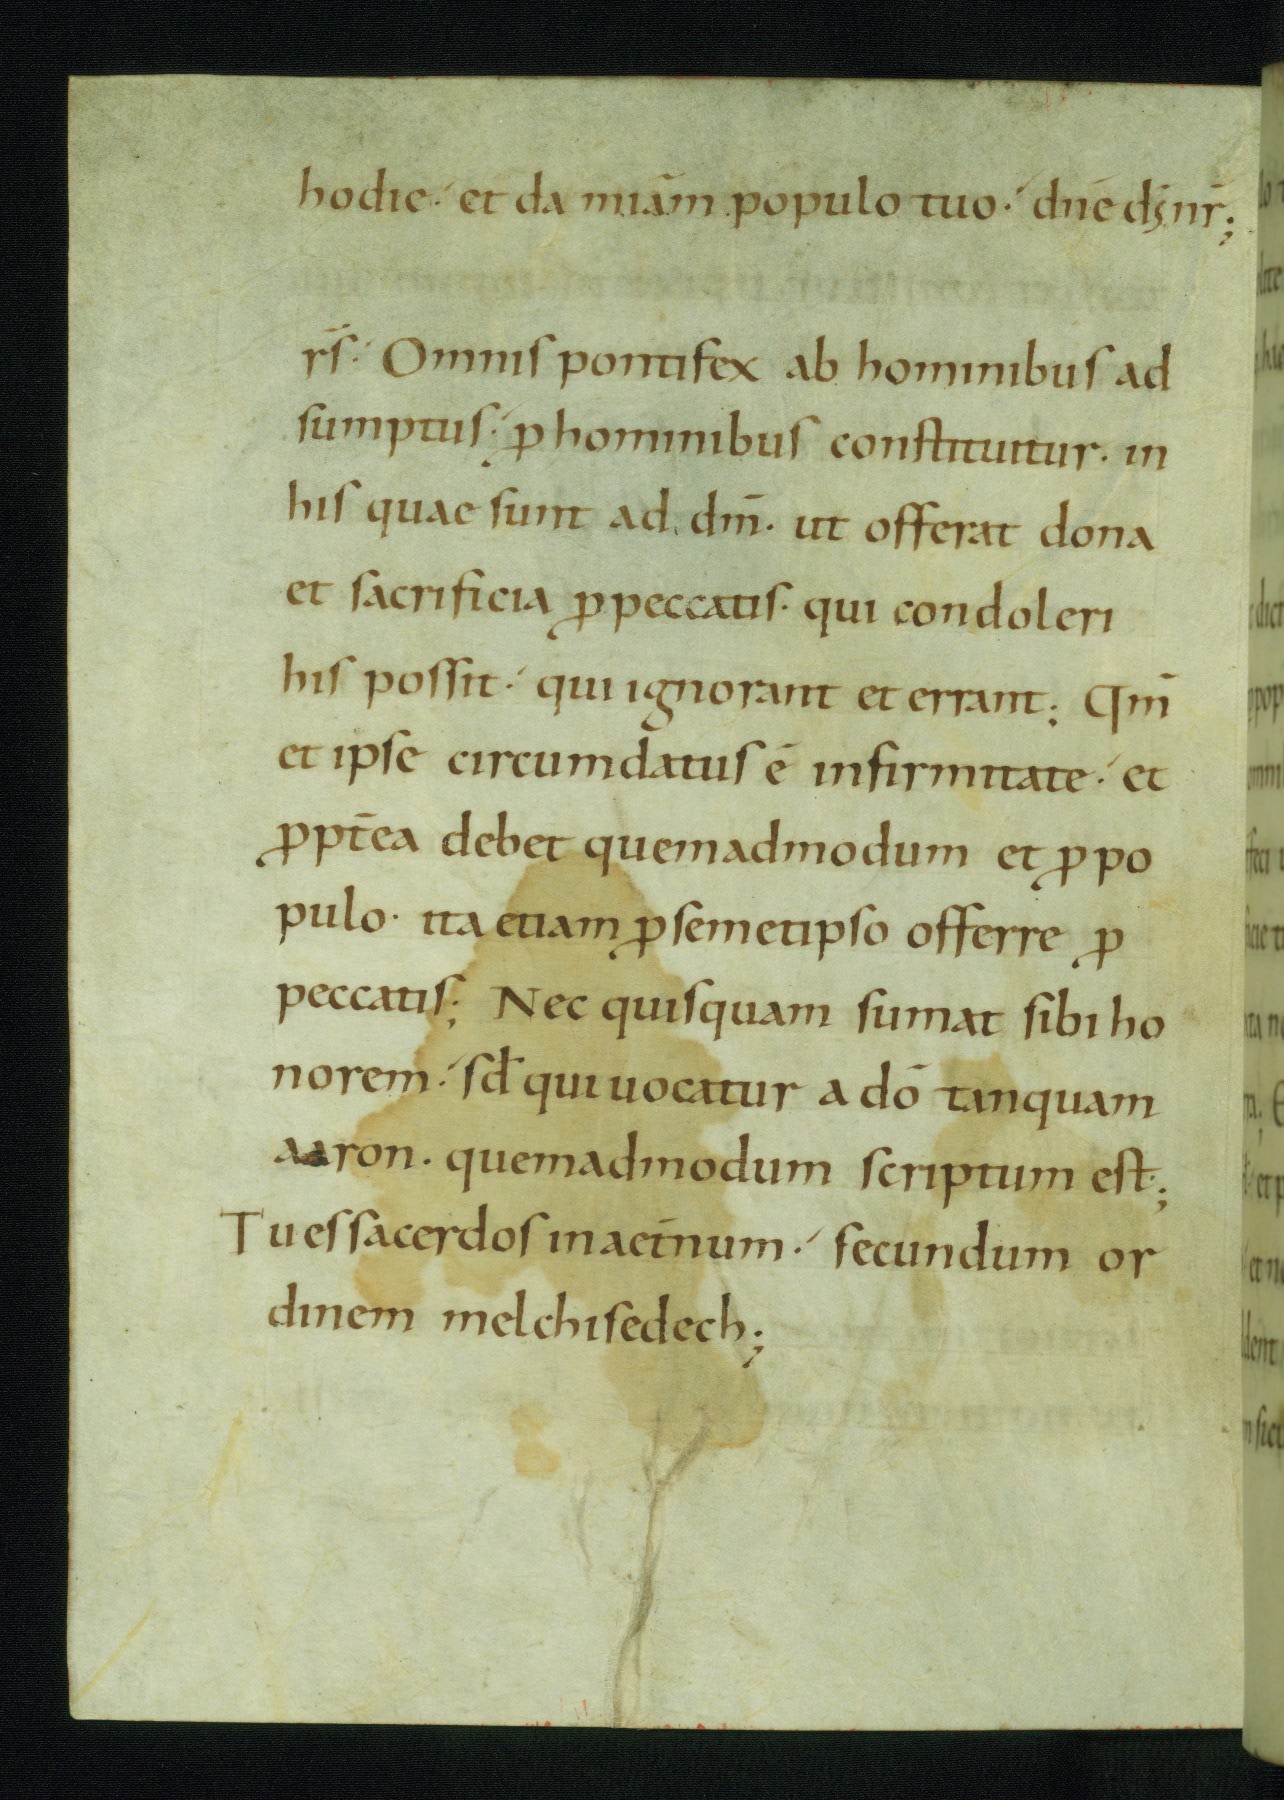 hodie· et da miām populo tuo· dnē ds̄ nr̄;
rs̄· Omnis pontifex ab hominibus ad
sumptus· ꝓ hominibus constituitur· in
his quae sunt ad dm̄· ut offerat dona
et sacrificia ꝓ peccatis· qui condoleri
his possit· qui ignorant et errant; Qm̄
et ipse circumdatus ē infirmitate· et
ꝓpt̄ea debet quemadmodum et ꝓ po
pulo· ita etiam ꝓ semetipso offerre ꝓ
peccatis; Nec quisquam sumat sibi ho
norem· sed̄ qui uocatur a dō tanquam
aaron· quemadmodum scriptum est;
Tu es sacerdos in aet̄num· secundum or
dinem melchisedech;